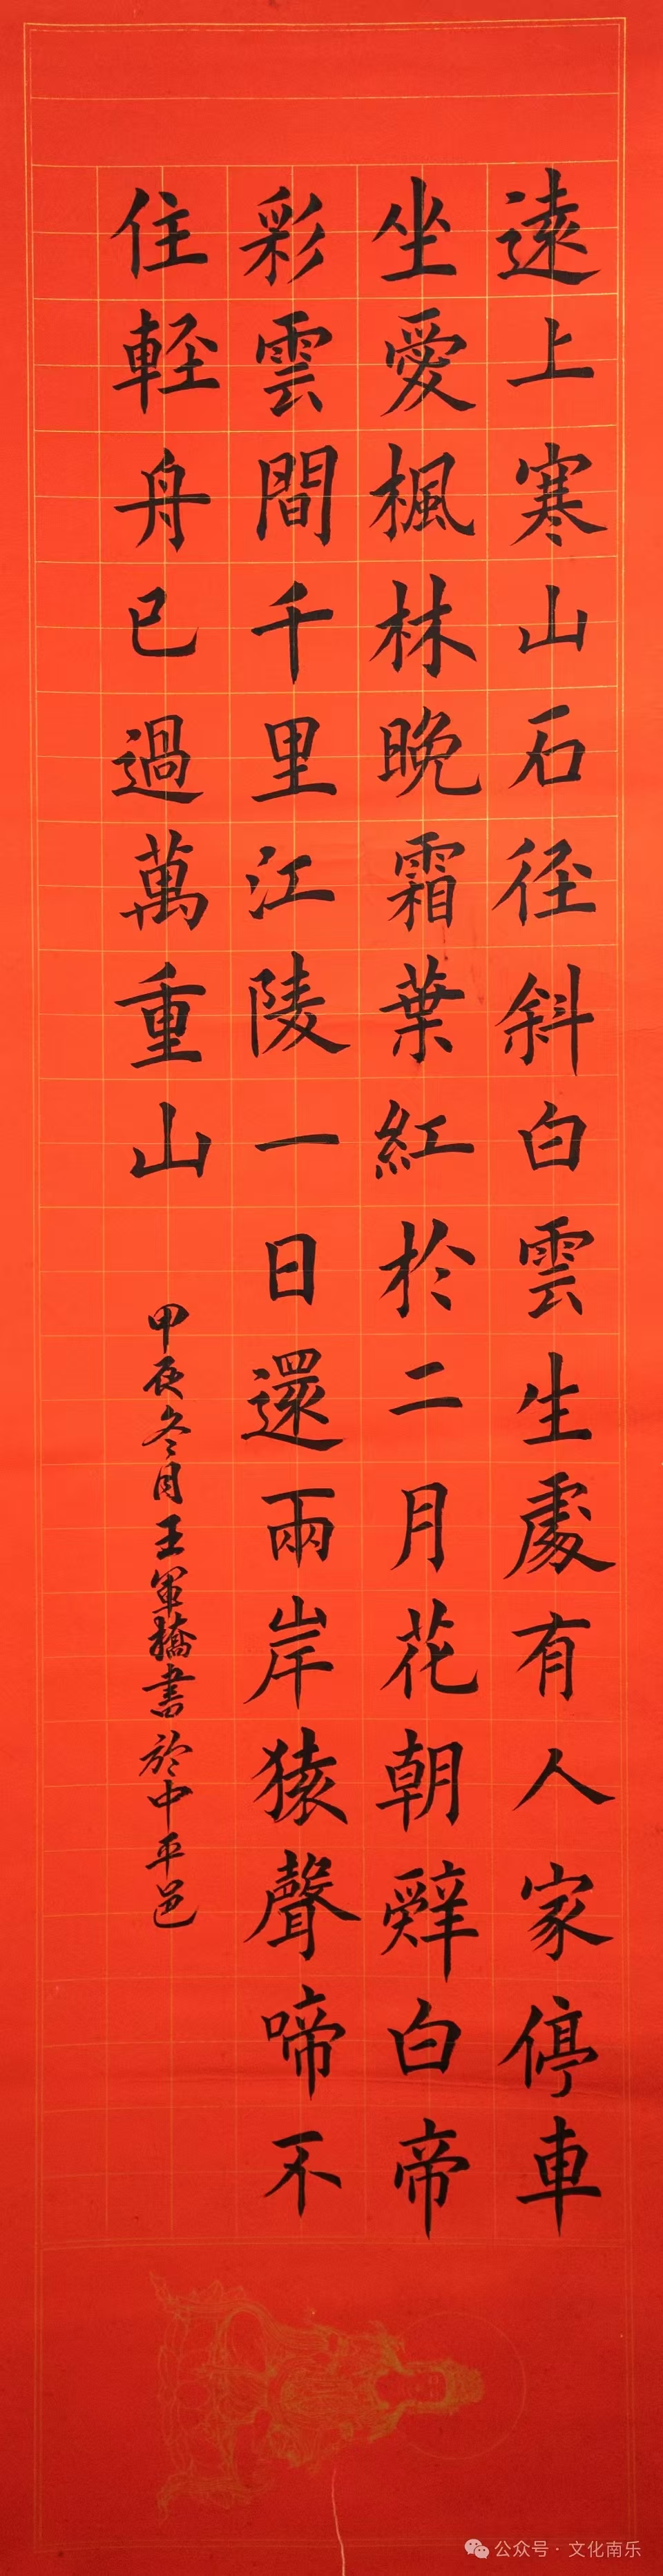 遠上寒山石径斜白雲生處有人家停車
坐愛楓林晚霜葉紅於二月花朝辤白帝
彩雲間千里江陵一日還兩岸猿聲啼不
住軽舟已過萬重山
甲辰冬月王軍橋書於中平邑
公众号·文化南乐